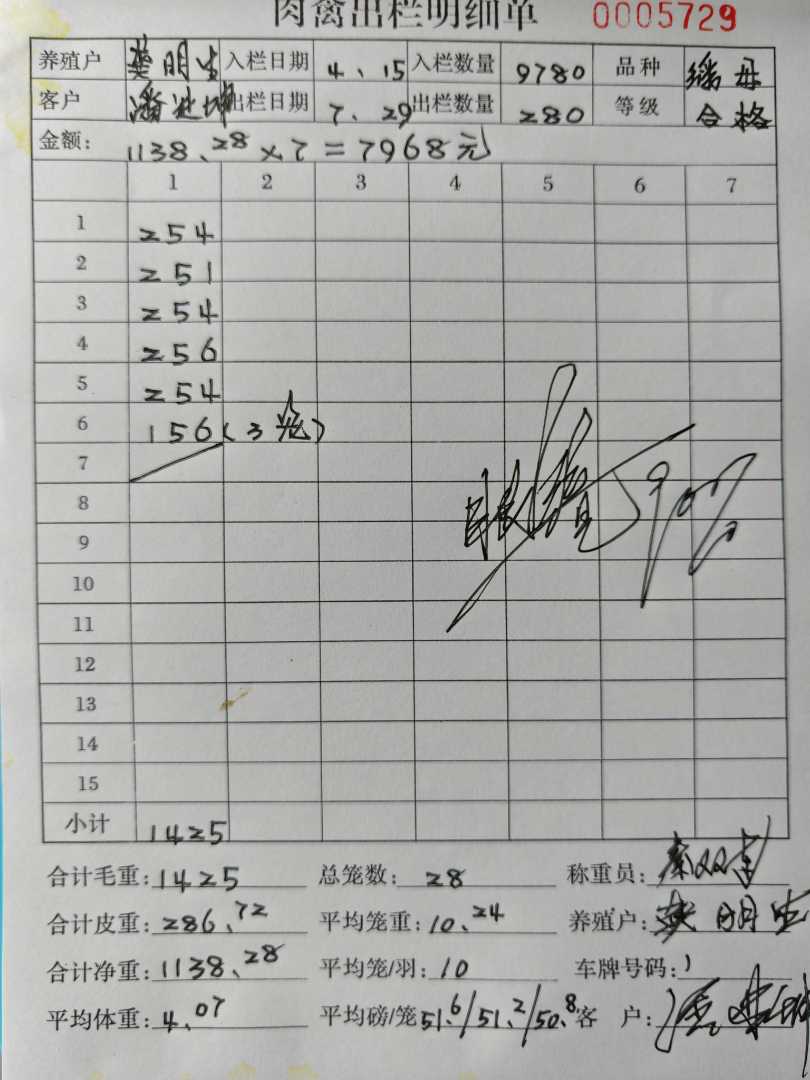 肉禽出栏明细单 0005729
养殖户 明生 入栏日期 4、15 入栏数量 9780 品种
客户 出栏日期 7、29 出栏数量 280 等级 合格
金额: 1138.28×7=7968元
1 2 3 4 5 6 7
1 254
2 251
3 254
4 256
5 254
6 156(3笼)
7
8
9
10
11
12
13
14
15
小计 1425
合计毛重: 1425 总笼数: 28 称重员:
合计皮重: 286.72 平均笼重: 10.24 养殖户: 明生
合计净重: 1138.28 平均笼/羽: 10 车牌号码:
平均体重: 4.07 平均磅/笼 51.6/51.2/50.8 客 户: